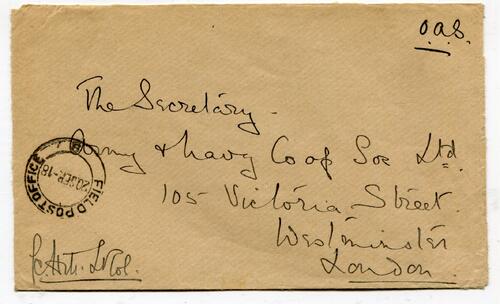 O.A.S.
The Secretary -
Army & Navy Co op Soc Ltd.
105 Victoria Street.
Westminster
London.
FIELD POST OFFICE
Lt Col.